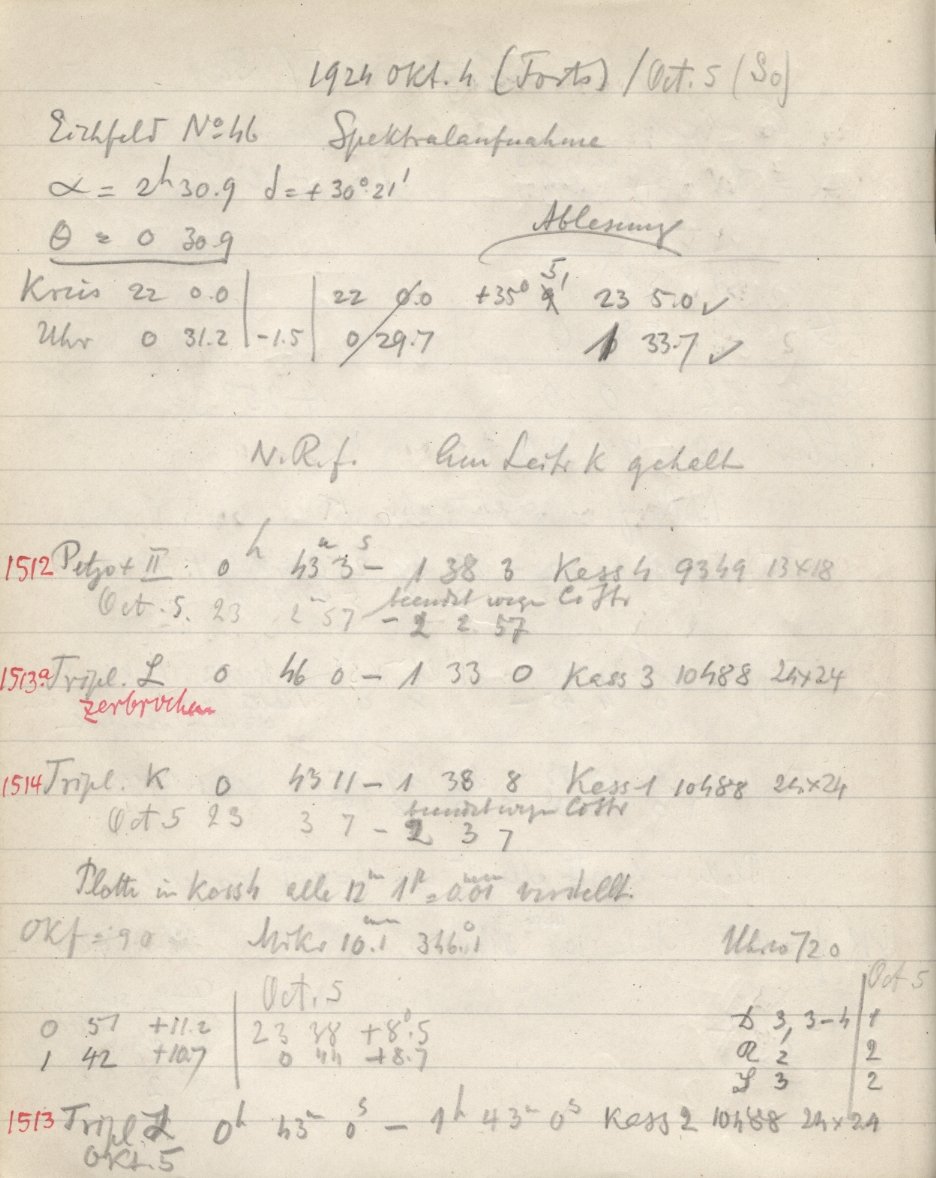 1924 Okt. 4 (Forts) / Oct. 5 (So)
Eichfeld No 46 Spektralaufnahme
α = 2h 30.9 δ = + 30° 21'
θ = 0 30.9 Ablesung
Kreis 22 0.0 22 0.0 +35° 5' 23 5.0 ✓
Uhr 0 31.2 -1.5 0 29.7 1 33.7 ✓
N.R.f. Am Leitr K gehalt
1512 Petzo+ II 0h 43m 3s - 1 38 3 Kass 4 9349 13x18
beendet wegen
Oct. 5. 23 2m 57 - 2 2 57
1513a Tripl. L 0 46 0 - 1 33 0 Kass 3 10488 24x24
zerbrochen
1514 Tripl. K 0 43 11 - 1 38 8 Kass 1 10488 24x24
beendet wegen
Oct 5 23 3 7 - 2 3 7
Platte in Kass 4 alle 12m 1p = 0.01mm verstellt.
Okf = 90 Mikr 10.1mm 346°.1 Uhr 720
Oct. 5 Oct 5
0 51 +11.2 23 38 +8°.5 D 3, 3-4 1
1 42 +10.7 0 44 +8.7 R 2 2
S 3 2
1513 Tripl. L 0h 43m 0s - 1h 43m 0s Kass 2 10488 24x24
Okt. 5